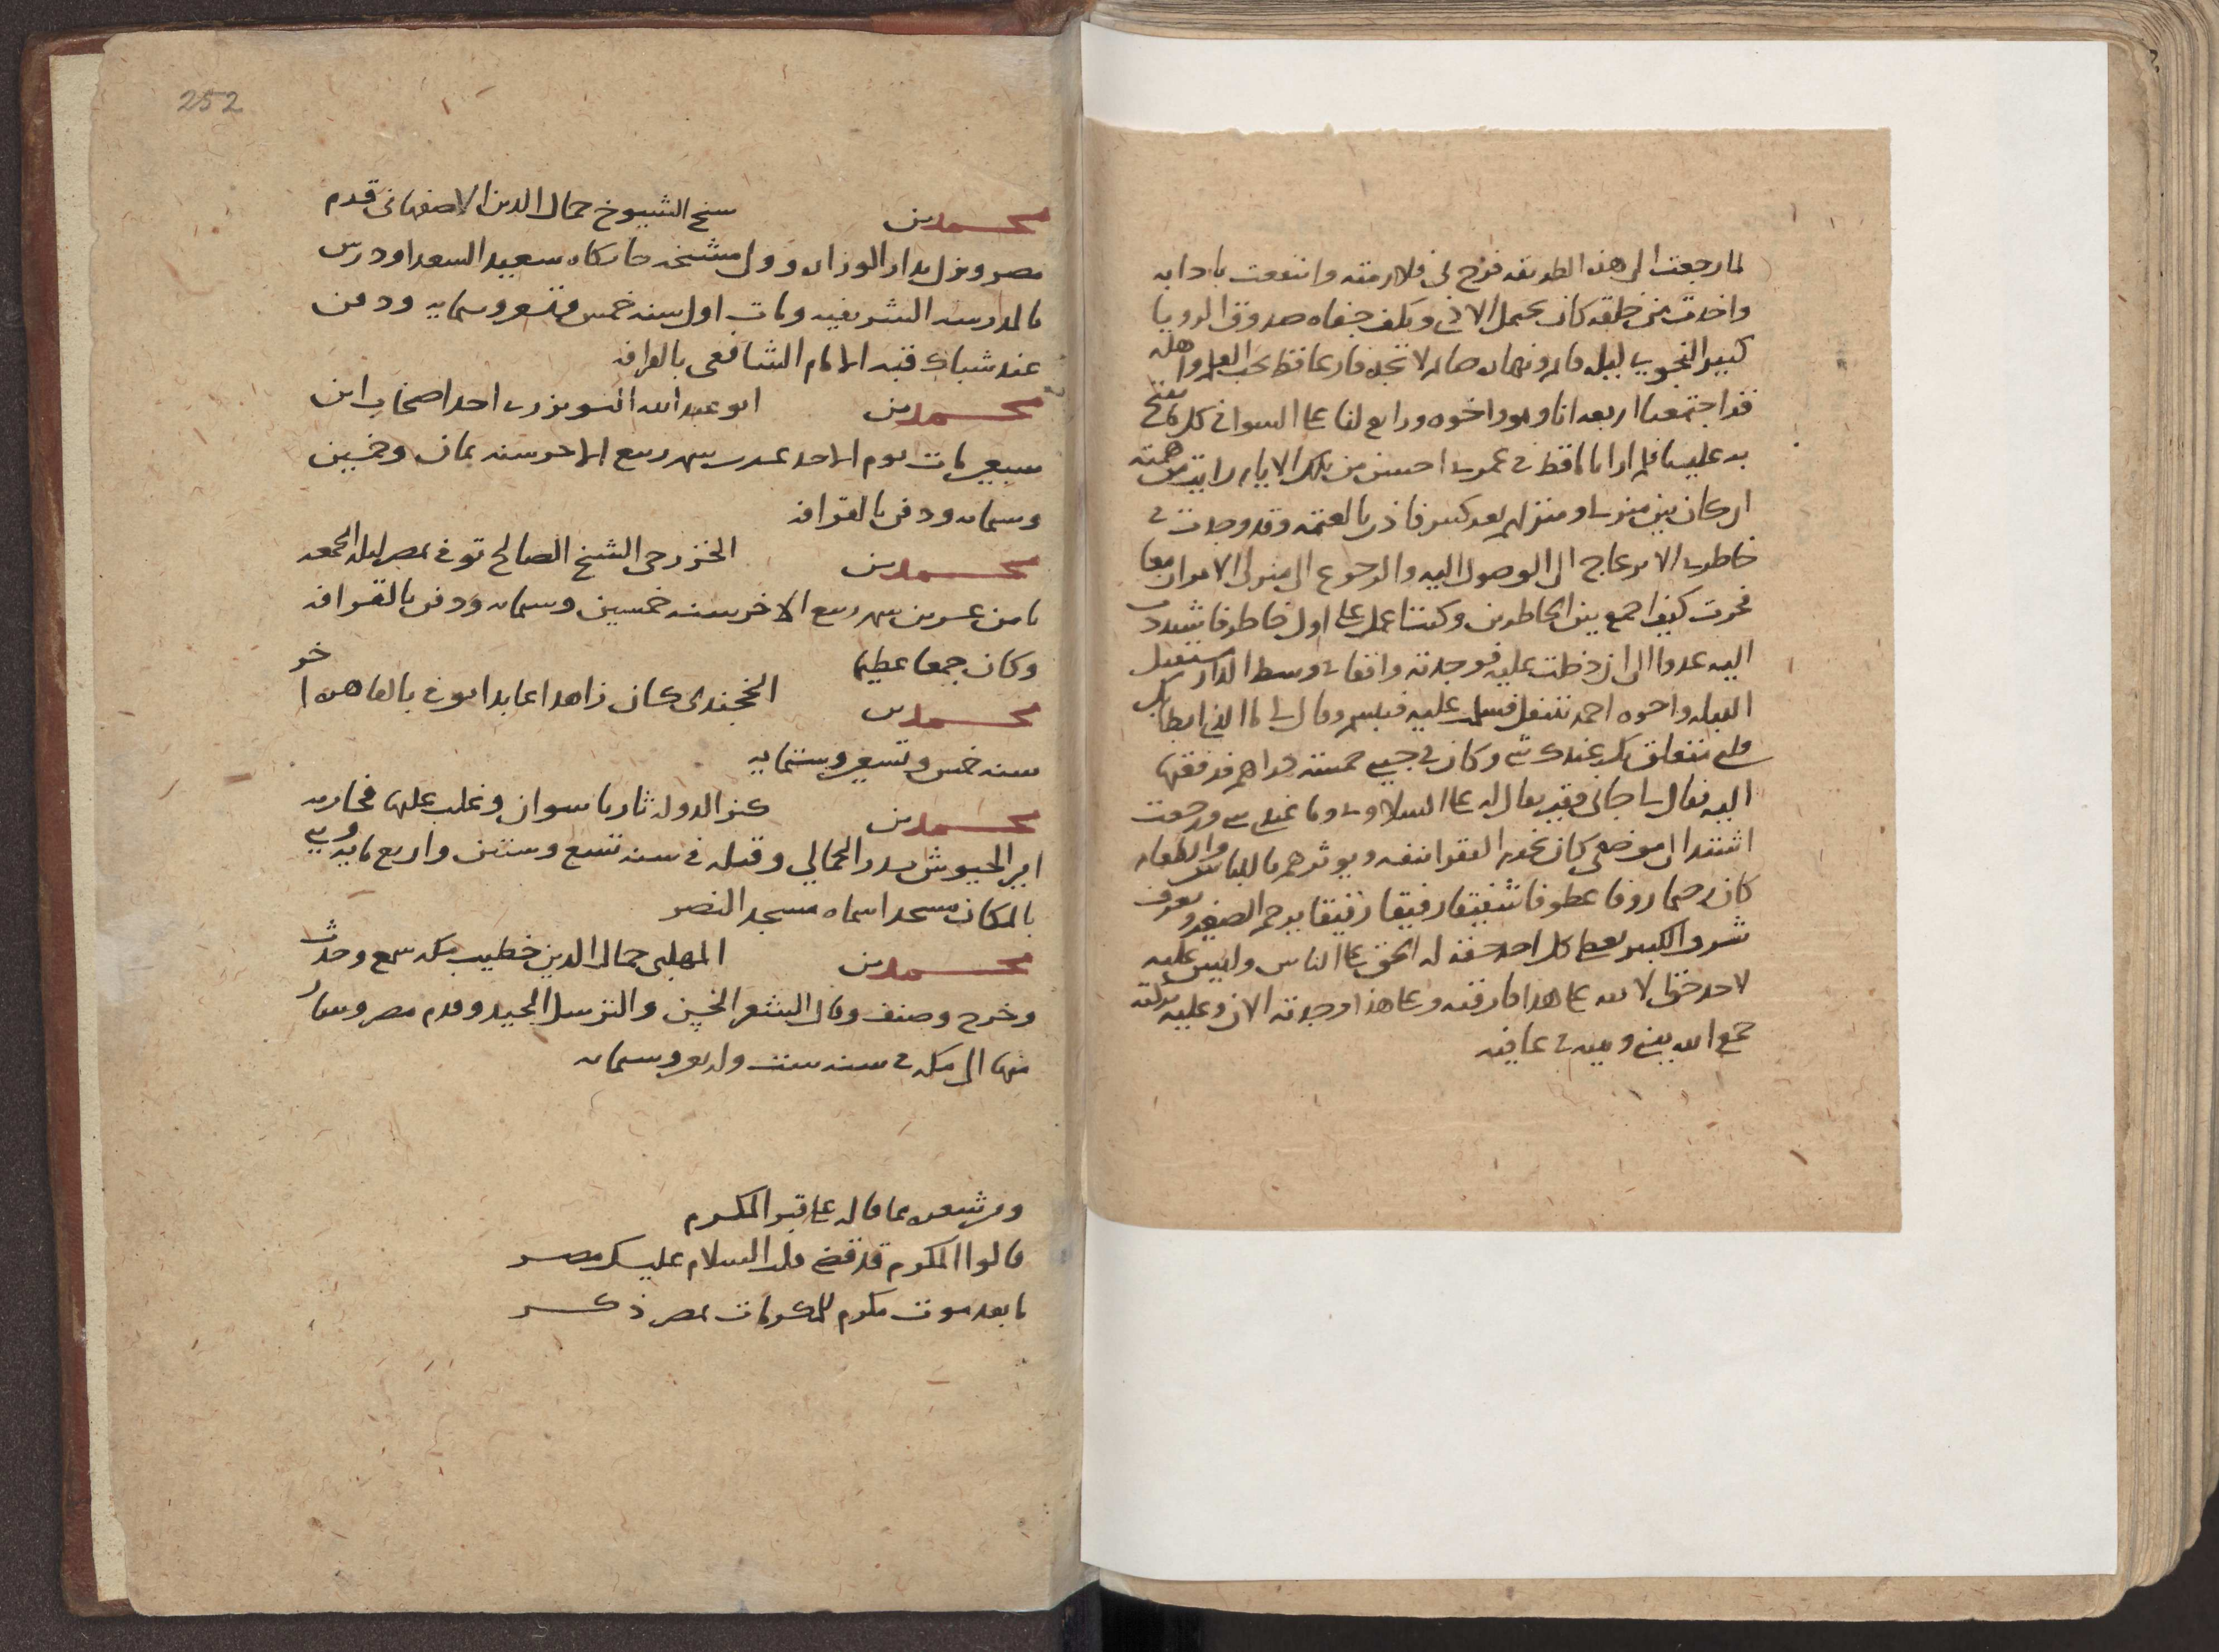 لما رجعت الى هذه الطريقه فرح لى فلازمته وانتفعت بادابه
واخذت من خلقه كان يحمل الاذى ويكف جفاه صدوق الرويا
كبير النجوى ليله قايم ونهاره صايم لا تجده فارغا قط يحب العلم واهله
فقد اجتمعنا اربعه انا وهو واخوه ورابع لنا على السوا فى كل ما يفتح
به علينا فلم ار اياما قط فى عمرى احسن من تلك الايام رايت من همته
ان كان بين منزلى ومنزلهم بعد كبير فاذن بالعتمه وقد وجدت فى
خاطرى الانزعاج الى الوصول اليه والرجوع الى منزلى الامران معا
فحرت كيف اجمع بين الخاطرين وكنت اعمل على اول خاطر فاشتددت
اليه عدوا الى ان دخلت عليه فوجدته واقفا فى وسط الدار مستقبل
القبله واخوه احمد يتنفل فسلمت عليه فتبسم وقال لى ما الذى ابطا بك
قلبى متعلق بك عندك شى وكان فى جيبى خمسه دراهم فدفعتها
اليه فقال لى جانى فقير يقال له على السلاوى وما عندى شى ورجعت
اشتد الى موضعى كان يخدم الفقرا بنفسه ويوثرهم باللباس والطعام
كان رحيما روفا عطوفا شفيقا رفيقا رقيقا يرحم الصغير ويعرف
شرف الكبير يعطى كل احد حقه له الحق على الناس وليس عليه
لاحد حق الا لله على هذا فارقته وعلى هذا وجدته الان وعليه تركته
جمع الله بينى وبينه فى عافيه
252
محمد بن شيخ الشيوخ جمال الدين الاصفهانى قدم
مصر ونزل بدار الوزاره وولى مشيخه خانكاه سعيد السعدا ودرس
بالمدرسه الشريفيه ومات اول سنه خمس وتسعين وستمايه ودفن
عند شباك قبه الامام الشافعى بالقرافه
محمد بن ابو عبد الله احد اصحاب ابن
سبعين مات يوم الاحد عشرى شهر ربيع الاخر سنه ثمان وخمسين
وستمايه ودفن بالقرافه
محمد بن الخزرجى الشيخ الصالح توفى بمصر ليله الجمعه
ثامن عشرين شهر ربيع الاخر سنه خمسين وستمايه ودفن بالقرافه
وكان جمعا عظيما
محمد بن الخجندى كان زاهدا عابدا توفى بالقاهره اخر
سنه خمس وتسعين وستمايه
محمد بن كنز الدوله ثار باسوان وغلب عليها فحاربه
امير الجيوش بدر الجمالي وقتله فى سنه تسع وستين واربع مايه وبنى
بالمكان مسجدا سماه مسجد النصر
محمد بن المهلبى جمال الدين خطيب مكه سمع وحدث
وخرج وصنف وقال الشعر الحسن والترسل الجيد وقدم مصر وسار
منها الى مكه فى سنه ست واربعين وستمايه
ومن شعره مما قاله على قبر المكرم
قالوا المكرم قد قضى قلت السلام عليك مصر
ما بعد موت مكرم للمكرمات بمصر ذكر